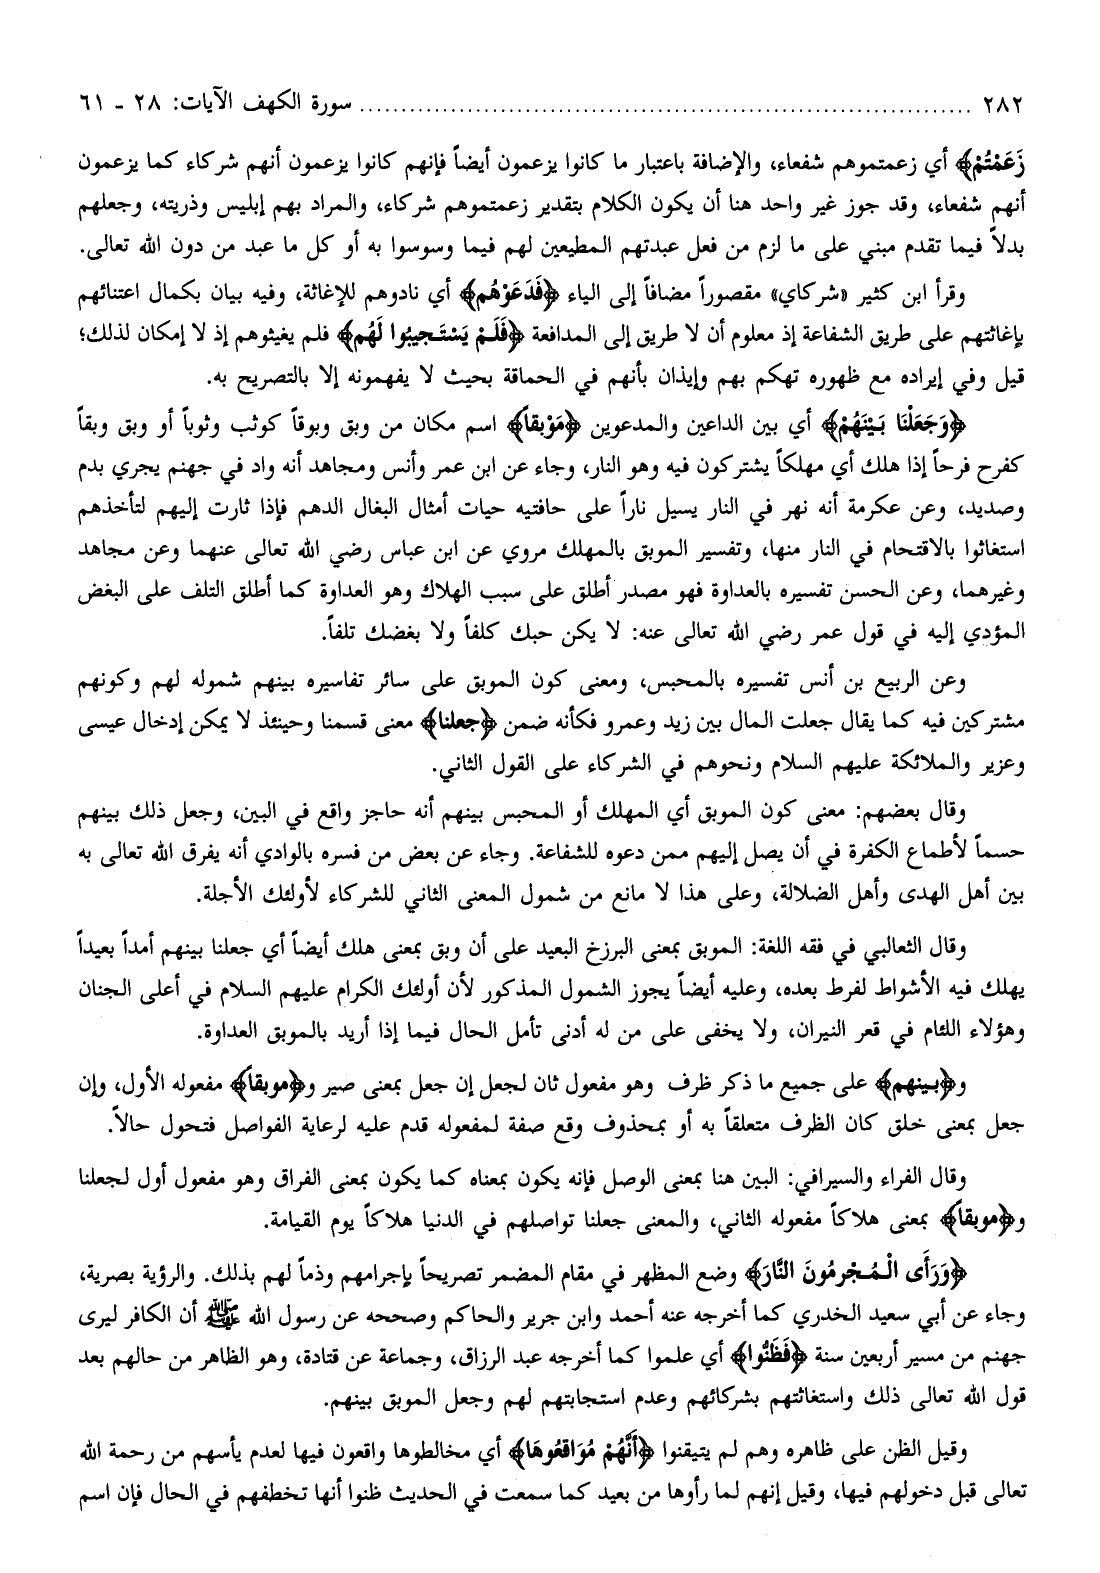 ٢٨٢ ........................................................................... سورة الكهف الآيات: ٢٨ - ٦١
زَعَمْتُمْ﴾ أي زعمتموهم شفعاء، والإضافة باعتبار ما كانوا يزعمون أيضاً فإنهم كانوا يزعمون أنهم شركاء كما يزعمون
أنهم شفعاء، وقد جوز غير واحد هنا أن يكون الكلام بتقدير زعمتموهم شركاء، والمراد بهم إبليس وذريته، وجعلهم
بدلاً فيما تقدم مبني على ما لزم من فعل عبدتهم المطيعين لهم فيما وسوسوا به أو كل ما عبد من دون الله تعالى.
وقرأ ابن كثير «شركاي» مقصوراً مضافاً إلى الياء ﴿فَدَعَوْهُم﴾ أي نادوهم للإغاثة، وفيه بيان بكمال اعتنائهم
بإغاثتهم على طريق الشفاعة إذ معلوم أن لا طريق إلى المدافعة ﴿فَلَمْ يَسْتَجيبُوا لَهُم﴾ فلم يغيثوهم إذ لا إمكان لذلك؛
قيل وفي إيراده مع ظهوره تهكم بهم وإيذان بأنهم في الحماقة بحيث لا يفهمونه إلا بالتصريح به.
﴿وَجَعَلْنَا بَيْنَهُمْ﴾ أي بين الداعين والمدعوين ﴿مَوْبقاً﴾ اسم مكان من وبق وبوقاً كوثب وثوباً أو وبق وبقاً
كفرح فرحاً إذا هلك أي مهلكاً يشتركون فيه وهو النار، وجاء عن ابن عمر وأنس ومجاهد أنه واد في جهنم يجري بدم
وصديد، وعن عكرمة أنه نهر في النار يسيل ناراً على حافتيه حيات أمثال البغال الدهم فإذا ثارت إليهم لتأخذهم
استغاثوا بالاقتحام في النار منها، وتفسير الموبق بالمهلك مروي عن ابن عباس رضي الله تعالى عنهما وعن مجاهد
وغيرهما، وعن الحسن تفسيره بالعداوة فهو مصدر أطلق على سبب الهلاك وهو العداوة كما أطلق التلف على البغض
المؤدي إليه في قول عمر رضي الله تعالى عنه: لا يكن حبك كلفاً ولا بغضك تلفاً.
وعن الربيع بن أنس تفسيره بالمحبس، ومعنى كون الموبق على سائر تفاسيره بينهم شموله لهم وكونهم
مشتركين فيه كما يقال جعلت المال بين زيد وعمرو فكأنه ضمن ﴿جعلنا﴾ معنى قسمنا وحينئذ لا يمكن إدخال عيسى
وعزير والملائكة عليهم السلام ونحوهم في الشركاء على القول الثاني.
وقال بعضهم: معنى كون الموبق أي المهلك أو المحبس بينهم أنه حاجز واقع في البين، وجعل ذلك بينهم
حسماً لأطماع الكفرة في أن يصل إليهم ممن دعوه للشفاعة. وجاء عن بعض من فسره بالوادي أنه يفرق الله تعالى به
بين أهل الهدى وأهل الضلالة، وعلى هذا لا مانع من شمول المعنى الثاني للشركاء لأولئك الأجلة.
وقال الثعالبي في فقه اللغة: الموبق بمعنى البرزخ البعيد على أن وبق بمعنى هلك أيضاً أي جعلنا بينهم أمداً بعيداً
يهلك فيه الأشواط لفرط بعده، وعليه أيضاً يجوز الشمول المذكور لأن أولئك الكرام عليهم السلام في أعلى الجنان
وهؤلاء اللئام في قعر النيران، ولا يخفى على من له أدنى تأمل الحال فيما إذا أريد بالموبق العداوة.
و﴿بينهم﴾ على جميع ما ذكر ظرف وهو مفعول ثان لجعل إن جعل بمعنى صير و﴿موبقاً﴾ مفعوله الأول، وإن
جعل بمعنى خلق كان الظرف متعلقاً به أو بمحذوف وقع صفة لمفعوله قدم عليه لرعاية الفواصل فتحول حالاً.
وقال الفراء والسيرافي: البين هنا بمعنى الوصل فإنه يكون بمعناه كما يكون بمعنى الفراق وهو مفعول أول لجعلنا
و﴿موبقاً﴾ بمعنى هلاكاً مفعوله الثاني، والمعنى جعلنا تواصلهم في الدنيا هلاكاً يوم القيامة.
﴿وَرَأَى الْمُجْرِمُونَ النَّارَ﴾ وضع المظهر في مقام المضمر تصريحاً بإجرامهم وذماً لهم بذلك. والرؤية بصرية،
وجاء عن أبي سعيد الخدري كما أخرجه عنه أحمد وابن جرير والحاكم وصححه عن رسول الله ﷺ أن الكافر ليرى
جهنم من مسير أربعين سنة ﴿فَظَنُّوا﴾ أي علموا كما أخرجه عبد الرزاق، وجماعة عن قتادة، وهو الظاهر من حالهم بعد
قول الله تعالى ذلك واستغاثتهم بشركائهم وعدم استجابتهم لهم وجعل الموبق بينهم.
وقيل الظن على ظاهره وهم لم يتيقنوا ﴿أَنَّهُمْ مُوَاقعُوهَا﴾ أي مخالطوها واقعون فيها لعدم يأسهم من رحمة الله
تعالى قبل دخولهم فيها، وقيل إنهم لما رأوها من بعيد كما سمعت في الحديث ظنوا أنها تخطفهم في الحال فإن اسم